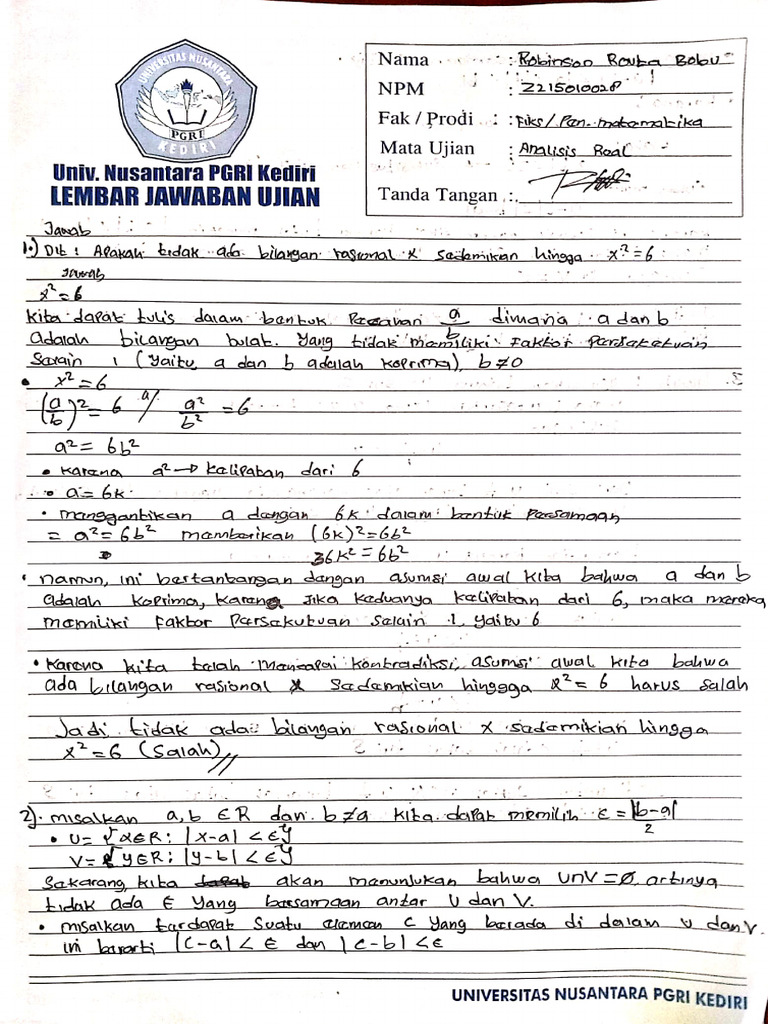 UNIVERSITAS NUSANTARA
PGRI
KEDIRI
Univ. Nusantara PGRI Kediri
LEMBAR JAWABAN UJIAN
Nama : Robinson Rouba Bobu
NPM : 2215010028
Fak / Prodi : FIKS / Pen. matamatika
Mata Ujian : Analisis Real
Tanda Tangan :
Jawab
1.) Dit : Apakah tidak ada bilangan rasional x sedemikan hingga x² = 6
Jawab
x² = 6
Kita dapat tulis dalam bentuk Pecahan a/b dimana a dan b
adalah bilangan bulat. Yang tidak memiliki faktor Persakatuan
Salain 1 (yaitu, a dan b adalah koprima), b ≠ 0
• x² = 6
(a/b)² = 6 // a²/b² = 6
a² = 6b²
• Karena a² → kelipatan dari 6
• a = 6k
• manggantikan a dangan 6k dalam bentuk Parsamaan
= a² = 6b² mambarikan (6k)² = 6b²
36k² = 6b²
• namun, ini bertantangan dengan asumsi awal kita bahwa a dan b
adalah koprima, karena Jika keduanya kalipatan dari 6, maka mereka
mamiliki faktor Parsakutuan salain 1, yaitu 6
• Karena kita talah mancapai kontradiksi, asumsi awal kita bahwa
ada bilangan rasional x sadamikian hinggga x² = 6 harus salah
Jadi tidak ada bilangan rasional x sadamikian hingga
x² = 6 (Salah) //
2). misalkan a, b ∈ R dan b ≠ a kita dapat memilih ε = |b-a|/2
• U = {x ∈ R : |x-a| < ε}
V = {y ∈ R : |y-b| < ε}
Sakarang, kita akan manunjukan bahwa U∩V = ∅, artinya
tidak ada ∈ yang barsamaan antar U dan V.
• misalkan tardapat suatu elemen C yang barada di dalam U dan V.
ini bararti |C-a| < ε dan |c-b| < ε
UNIVERSITAS NUSANTARA PGRI KEDIRI